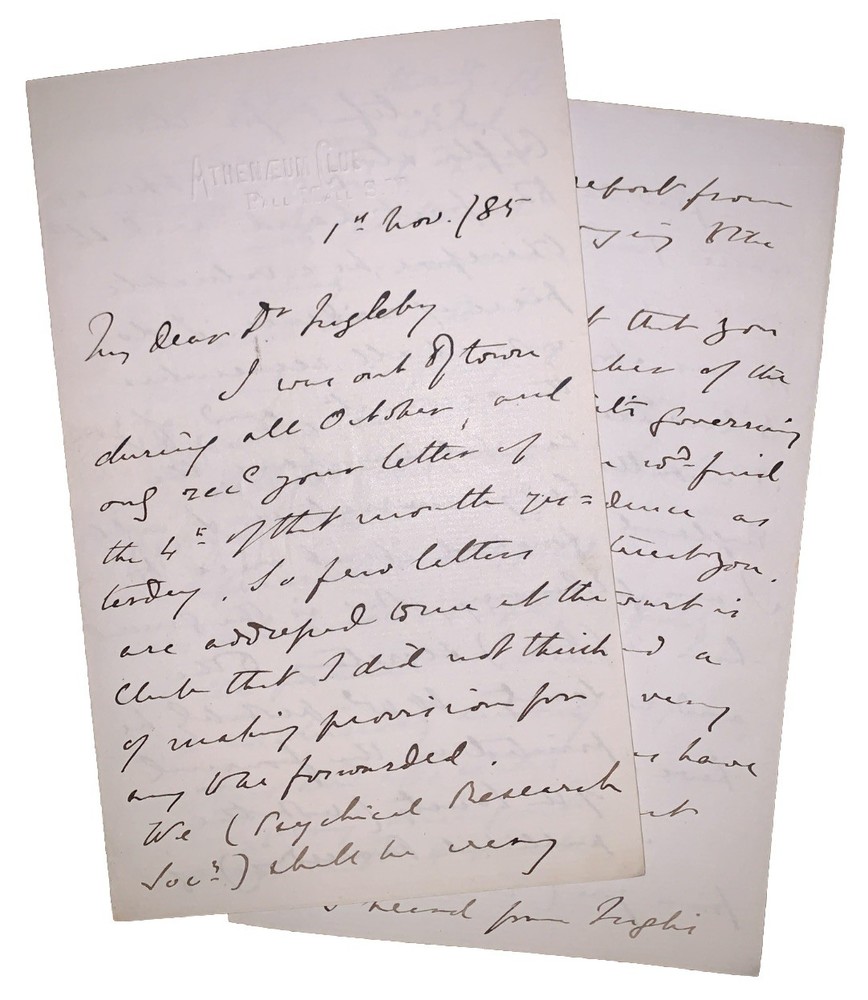 ATHENÆUM CLUB
PALL MALL S.W.
1st Nov. /85
My dear Dr Ingleby
I was out of town
during all October, and
only recd your letter of
the 4th of that month yes=
terday. So few letters
are addressed to me at the
Club that I did not think
of making provision for
any to be forwarded.
We (Psychical Research
Socy) shall be very
report from
to the
that you
of the
governing
wd find
dence as
you.
is
a
very
have
heard from